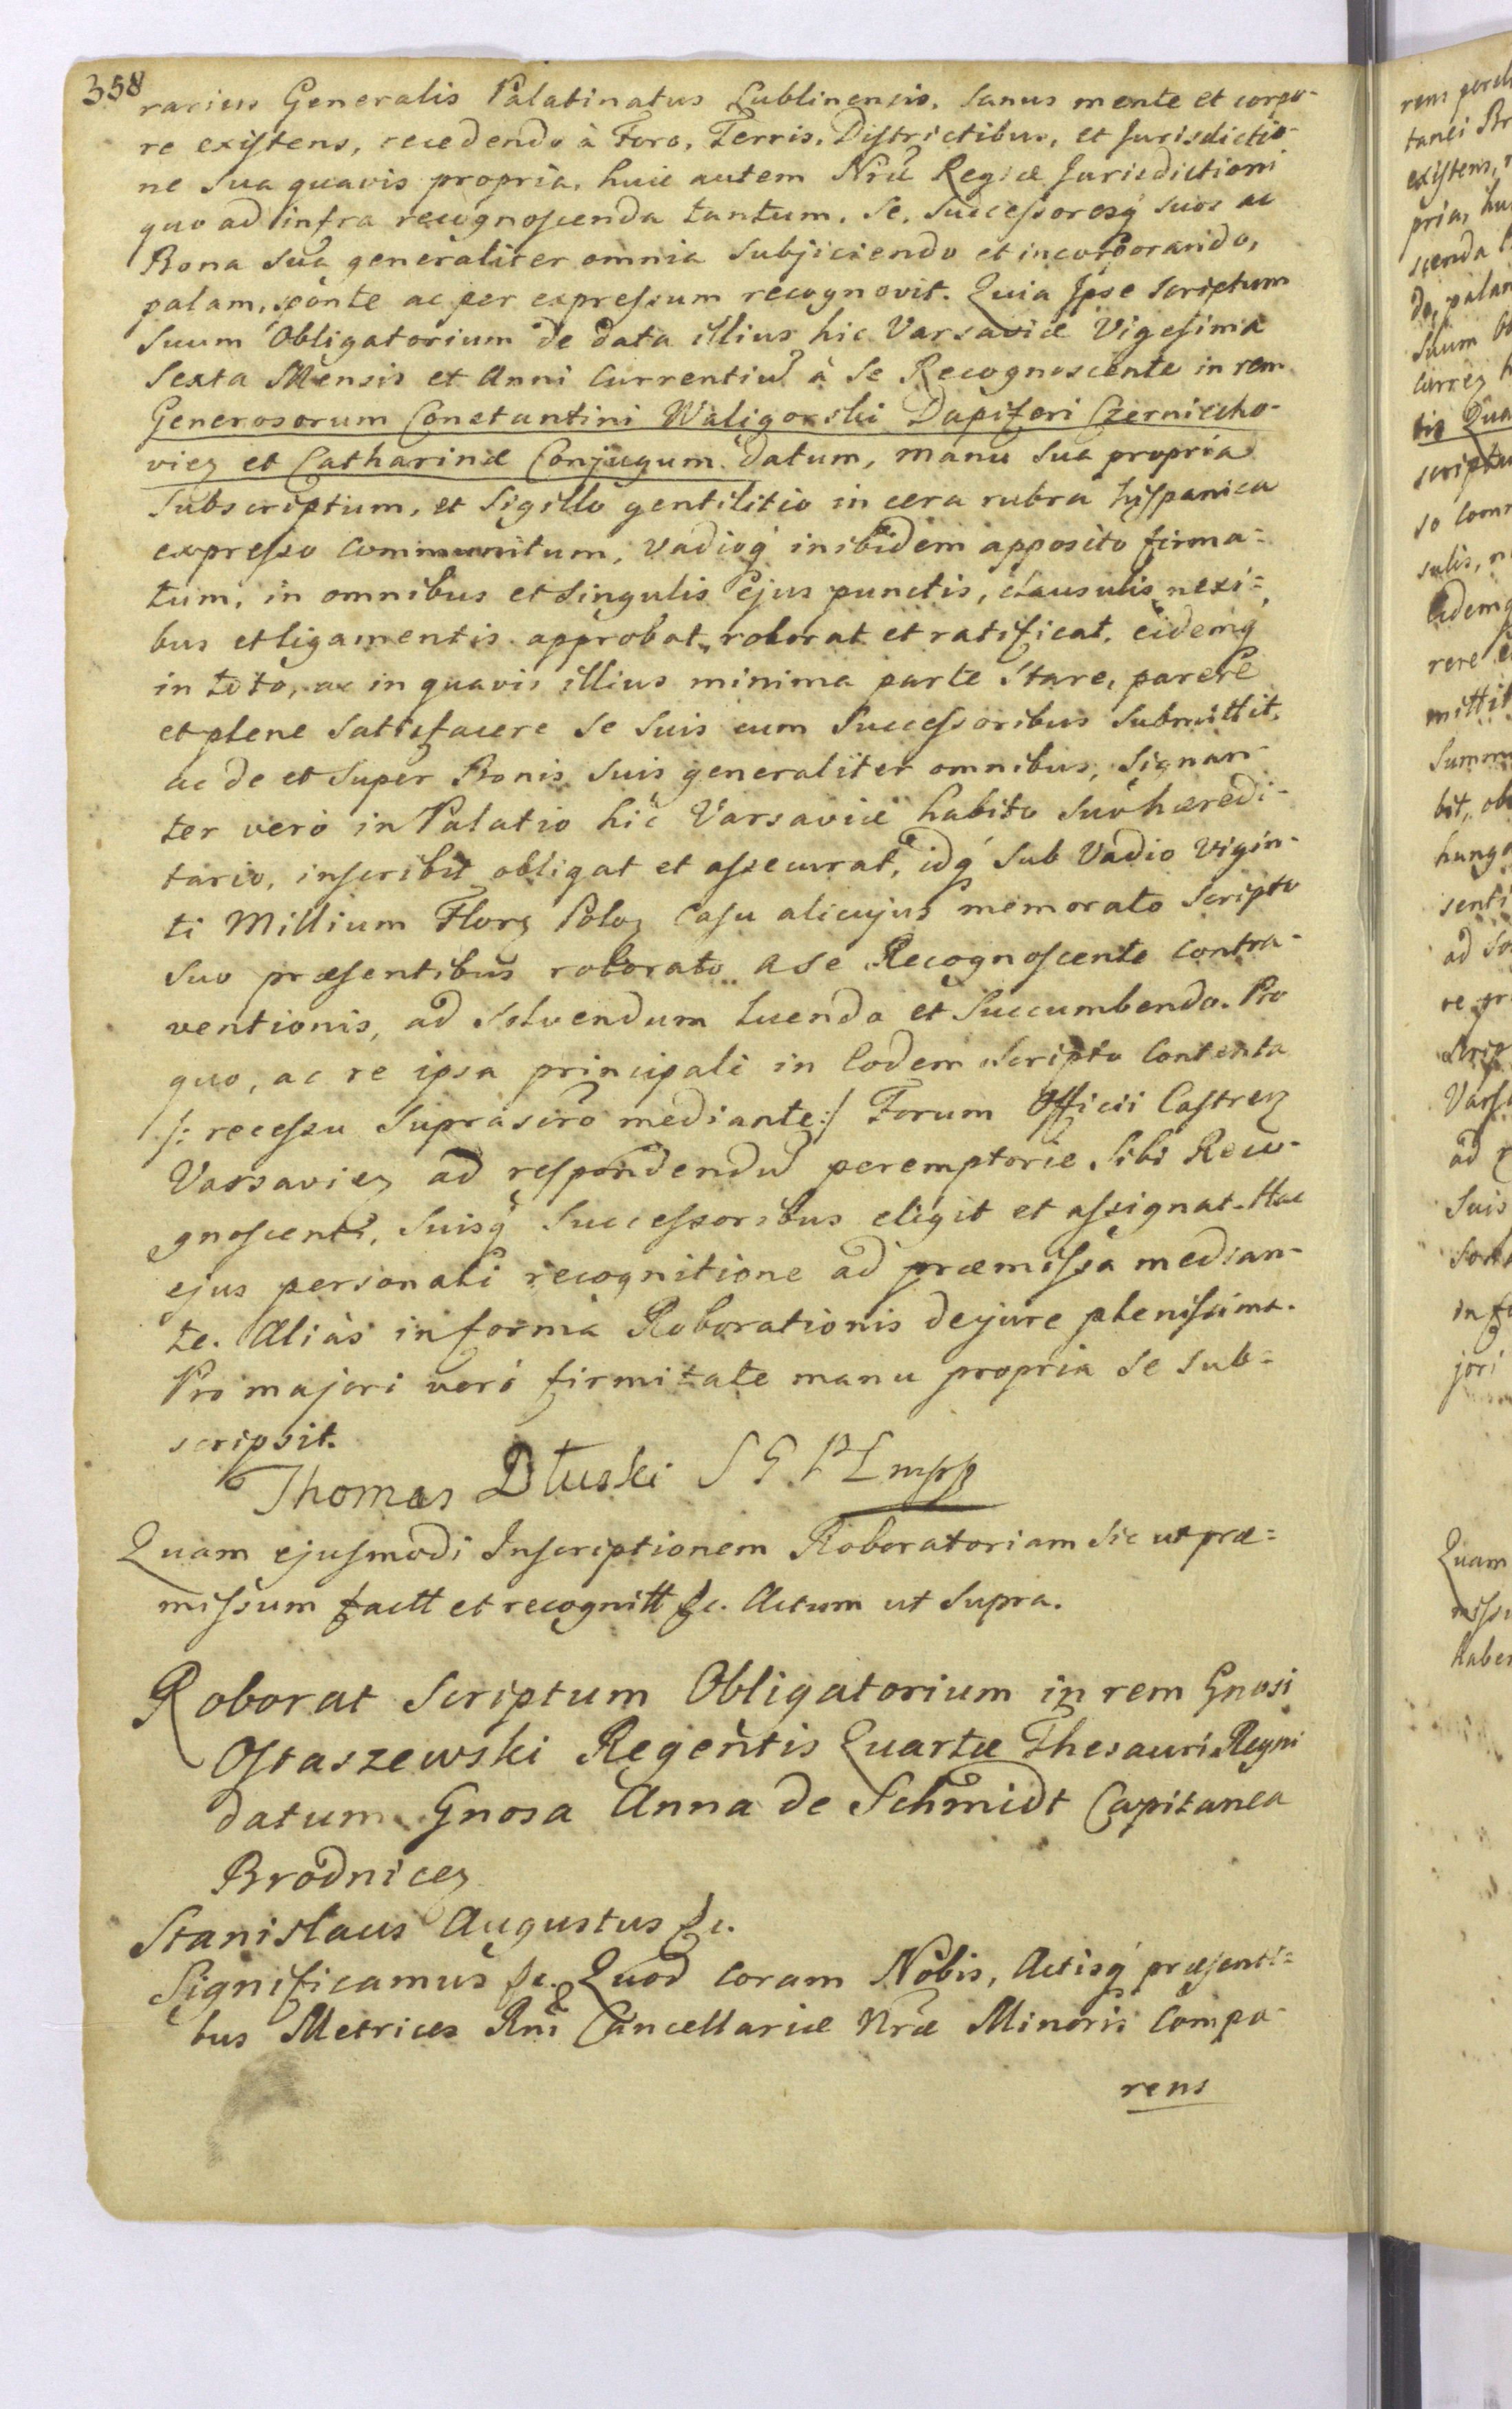 358
rarius Generalis Palatinatus Lublinensis, sanus mente et corpo-
re existens, recedendo à Foro, Terris, Districtibus, et Jurisdictio-
ne sua quavis propria, huic autem Nrae Regiae Jurisdictioni
quo ad infra recognoscenda tantum, se, successoresq suos ac
Bona sua generaliter omnia subjiciendo et incorporando,
palam, sponte ac per expressum recognovit. Quia Ipse scriptum
suum Obligatorium de data illius hic Varsaviae Vigesima
Sexta Mensis et Anni currentiu à se Recognoscente in rem
Generosorum Constantini Waligorski Dapiferi Czerniecho-
vien et Catharinae Conjugum datum, manu sua propria
subscriptum, et sigillo gentilitio in cera rubra hispanica
expresso communitum, vadioq inibidem apposito firma=
tum, in omnibus et singulis ejus punctis, clausulis, nexi=
bus et ligamentis approbat, roborat et ratificat, eidemq
in toto, ac in quavis illius minima parte stare, parere
et plene satisfacere se suis cum successoribus submittit,
ac de et super Bonis suis generaliter omnibus, signan-
ter vero in Palatio hic Varsaviae habito suo haeredi-
tario, inscribit obligat et assecurat, idq sub Vadio Vigin-
ti Millium Floren Polon casu alicujus memorato scripto
suo praesentibus roborato a se Recognoscente contra-
ventionis, ad solvendum luendo et succumbendo. Pro
quo, ac re ipsa principali in eodem scripto contenta
/: recessu suprascro mediante :/ Forum Officii Castren
Varsavien ad respondendu peremptorie sibi Reco-
gnoscenti, suisq successoribus eligit et assignat. Hac
ejus personali recognitione ad praemissa median-
te. Aliàs in forma Roborationis de jure plenissima.
Pro majori verò firmitate manu propria se sub=
scripsit.
Thomas Dłuski S G P L mpp
Quam ejusmodi Inscriptionem Roboratoriam sic ut prae=
missum factt et recognitt &c. Actum ut supra.
Roborat Scriptum Obligatorium in rem Gnosi
Ostaszewski Regentis Quartae Thesauri Regni
datum Gnosa Anna de Schmidt Capitanea
Brodnicen
Stanislaus Augustus &c.
Significamus &c. Quod coram Nobis, Actisq praesenti=
bus Metrices Rni Cancellariae Nrae Minoris Compa-
rens